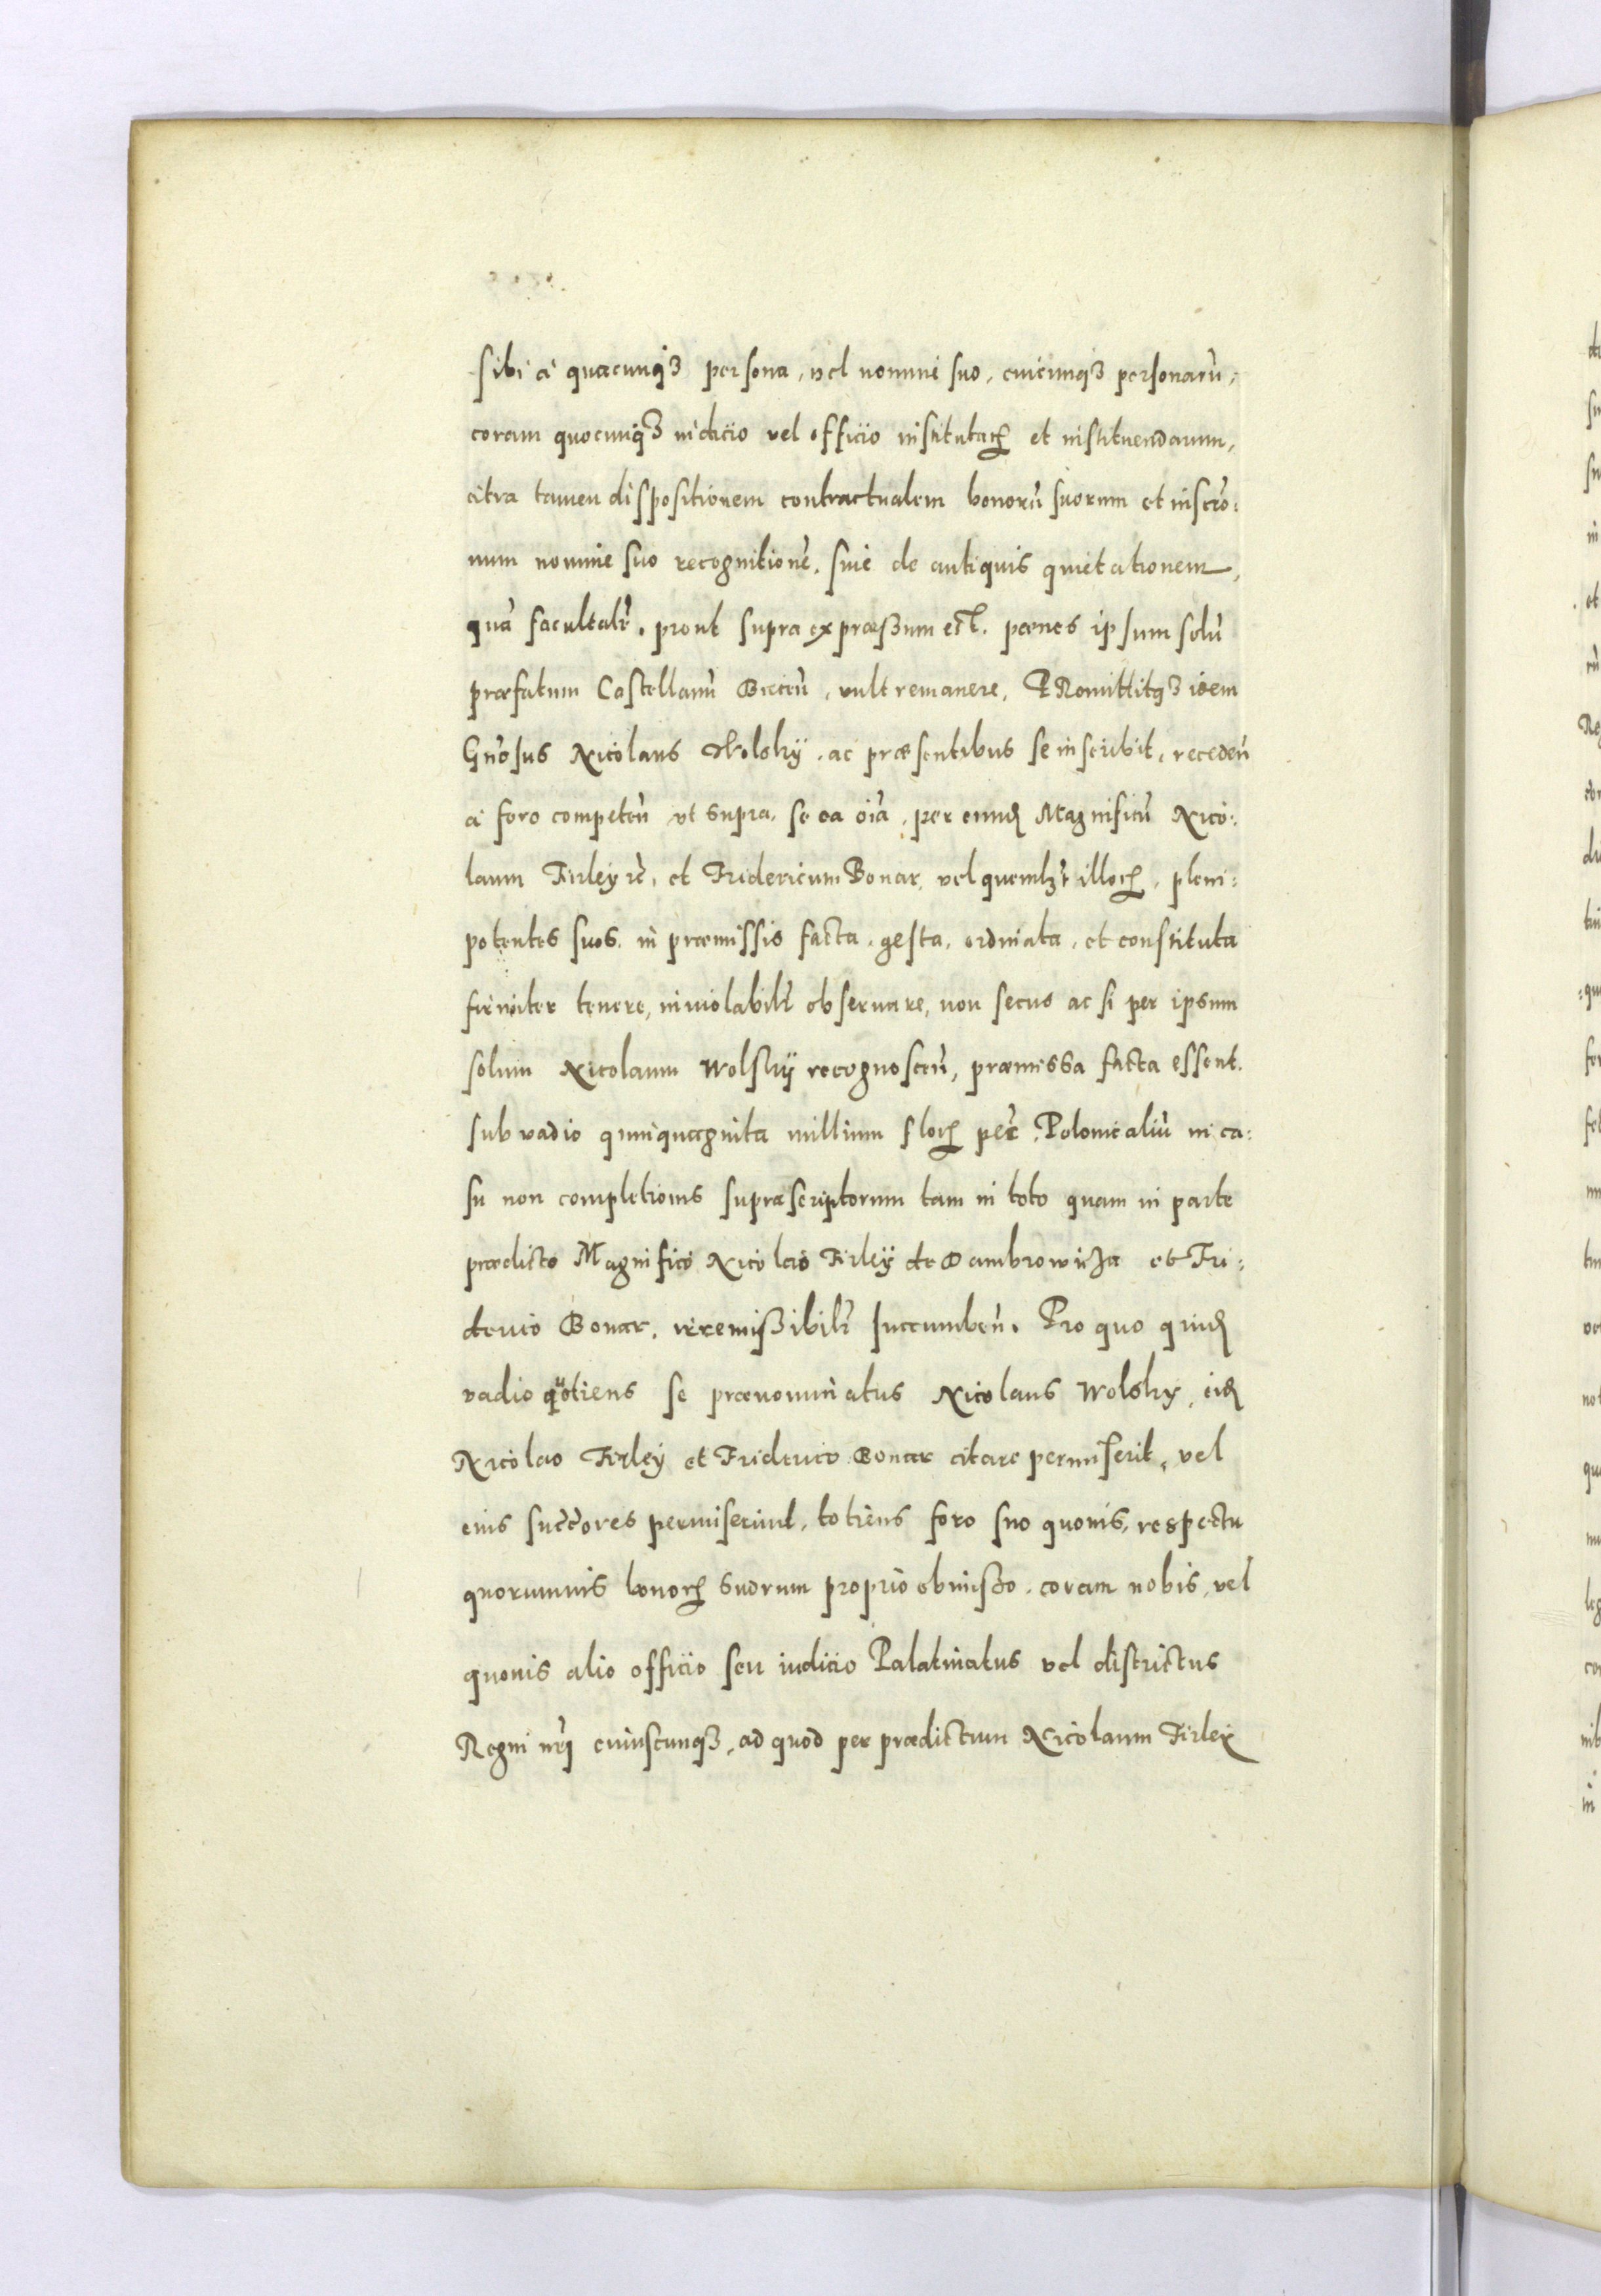 sibi à quacunqȝ persona, vel nomine suo, cuicunqȝ personarũ,
coram quocunqȝ iudicio vel officio institutaꝝ et instituendarum,
citra tamen dispositionem contractualem bonorũ suorum et inscrõ:
num nomine suo recognitionẽ, siue de antiquis quietationem,
quã facultatẽ, prout supra expræssum est, pænes ipsum solũ
præfatum Castellanũ Biecen̄, vult remanere, Promittitqȝ idem
Gnõsus Nicolaus Wolsky, ac præsentibus se inscribit, receden̄
à foro competen̄ vt supra, se ea oĩa, per eundꝫ Magnificũ Nico:
laum Firleÿ rc̃, et Fridericum Bonar, vel quemlȝt illoꝝ, pleni:
potentes suos, in præmissis facta, gesta, ordinata, et constituta
firmiter tenere, inuiolabilr̃ obseruare, non secus ac si per ipsum
solum Nicolaum Wolskÿ recognoscen̄, præmissa facta essent,
sub vadio quinquaginta millium floꝝ pec̃, Polonicaliũ in ca:
su non completionis supræscriptorum tam in toto quam in parte
prædicto Magnifico Nicolao Firleÿ de Dambrowicza et Fri:
derico Bonar, irremissibilr̃ succumben̄. Pro quo quidꝫ
vadio quotiens se prænominatus Nicolaus Wolsky, eidꝫ
Nicolao Firleÿ et Friderico Bonar citare permiserit, vel
eius succ̃ores permiserint, totiens foro suo quouis, respectu
quorumuis bonoꝝ suorum proprio obmisso, coram nobis, vel
quouis alio officio seu iudicio Palatinatus vel districtus
Regni nr̃i cuiuscunqȝ, ad quod per prædictum Nicolaum Firleÿ